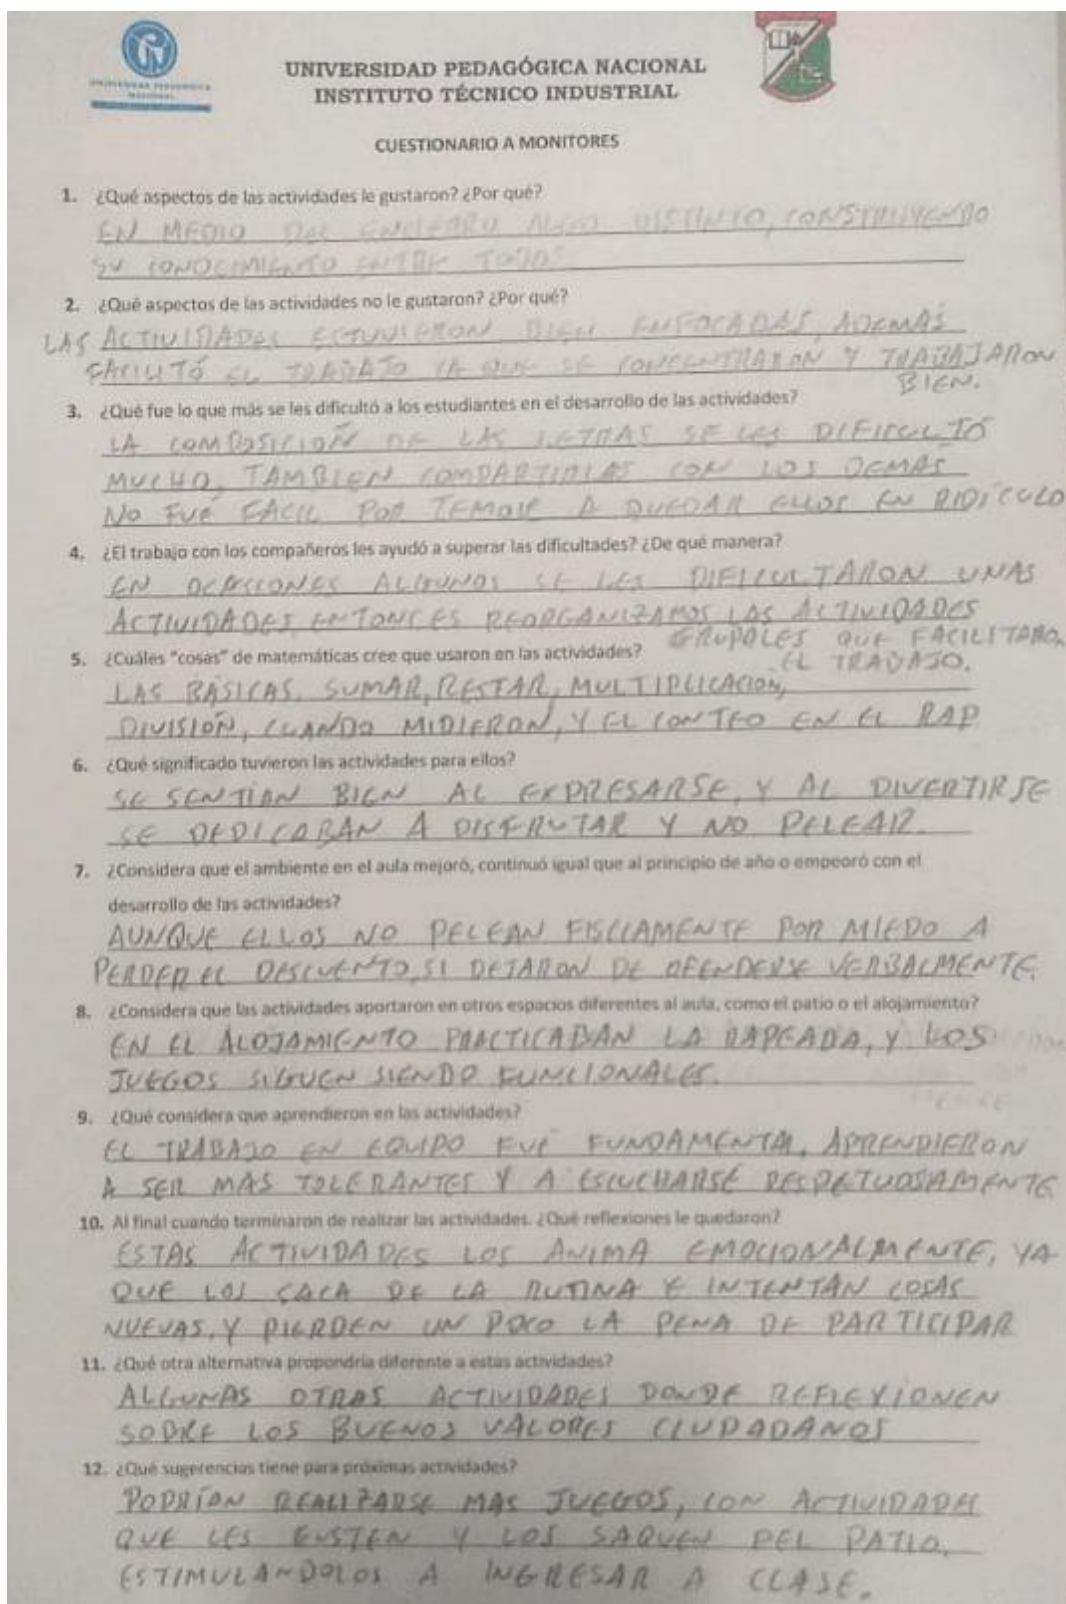 UNIVERSIDAD PEDAGÓGICA
NACIONAL
UNIVERSIDAD PEDAGÓGICA NACIONAL
INSTITUTO TÉCNICO INDUSTRIAL
CUESTIONARIO A MONITORES
1. ¿Qué aspectos de las actividades le gustaron? ¿Por qué?
EN MEDIO DEL ENCIERRO ALGO DISTINTO, CONSTRUYENDO
SU CONOCIMIENTO ENTRE TODOS
2. ¿Qué aspectos de las actividades no le gustaron? ¿Por qué?
LAS ACTIVIDADES ESTUVIERON BIEN ENFOCADAS, ADEMÁS
FACILITÓ EL TRABAJO YA QUE SE CONCENTRARON Y TRABAJARON
BIEN.
3. ¿Qué fue lo que más se les dificultó a los estudiantes en el desarrollo de las actividades?
LA COMPOSICIÓN DE LAS LETRAS SE LES DIFICULTÓ
MUCHO, TAMBIEN COMPARTIRLAS CON LOS DEMÁS
NO FUÉ FÁCIL POR TEMOR A QUEDAR ELLOS EN RIDÍCULO
4. ¿El trabajo con los compañeros les ayudó a superar las dificultades? ¿De qué manera?
EN OCACIONES ALGUNOS SE LES DIFICULTARON UNAS
ACTIVIDADES, ENTONCES REORGANIZAMOS LAS ACTIVIDADES
GRUPALES QUE FACILITARON
EL TRABAJO.
5. ¿Cuáles "cosas" de matemáticas cree que usaron en las actividades?
LAS BÁSICAS, SUMAR, RESTAR, MULTIPLICACION,
DIVISIÓN, CUANDO MIDIERON, Y EL CONTEO EN EL RAP
6. ¿Qué significado tuvieron las actividades para ellos?
SE SENTÍAN BIEN AL EXPRESARSE, Y AL DIVERTIRSE
SE DEDICABAN A DISFRUTAR Y NO PELEAR.
7. ¿Considera que el ambiente en el aula mejoró, continuó igual que al principio de año o empeoró con el
desarrollo de las actividades?
AUNQUE ELLOS NO PELEAN FISCIAMENTE POR MIEDO A
PERDER EL DESCUENTO, SI DEJARON DE OFENDERSE VERBALMENTE.
8. ¿Considera que las actividades aportaron en otros espacios diferentes al aula, como el patio o el alojamiento?
EN EL ALOJAMIENTO PRACTICABAN LA RAPEADA, Y LOS
JUEGOS SIGUEN SIENDO FUNCIONALES.
9. ¿Qué considera que aprendieron en las actividades?
EL TRABAJO EN EQUIPO FUÉ FUNDAMENTAL, APRENDIERON
A SER MAS TOLERANTES Y A ESCUCHARSE RESPETUOSAMENTE
10. Al final cuando terminaron de realizar las actividades. ¿Qué reflexiones le quedaron?
ESTAS ACTIVIDADES LOS ANIMA EMOCIONALMENTE, YA
QUE LOS SACA DE LA RUTINA E INTENTAN COSAS
NUEVAS, Y PIERDEN UN POCO LA PENA DE PARTICIPAR
11. ¿Qué otra alternativa propondría diferente a estas actividades?
ALGUNAS OTRAS ACTIVIDADES DONDE REFLEXIONEN
SOBRE LOS BUENOS VALORES CIUDADANOS
12. ¿Qué sugerencias tiene para próximas actividades?
PODRÍAN REALIZARSE MAS JUEGOS, CON ACTIVIDADES
QUE LES GUSTEN Y LOS SAQUEN DEL PATIO,
ESTIMULANDOLOS A INGRESAR A CLASE.